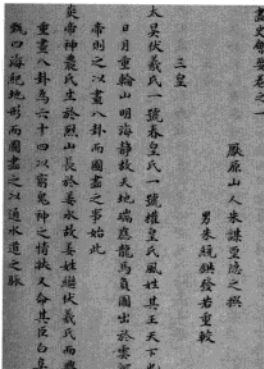 畫史會要卷之一
厭原山人朱謀垔隱之撰
男朱統鉷發若重較
三皇
太昊伏羲氏一號春皇氏一號權皇氏風姓其王天下也
日月重輪山明海靜故天地瑞應龍馬負圖出於雲河
帝則之以畫八卦而圖畫之事始此
炎帝神農氏生於烈山長於姜水故姜姓繼伏羲氏而
重畫八卦為六十四以窮鬼神之情狀又命其臣白
甄四海紀地形而圖畫之以通水道之脉